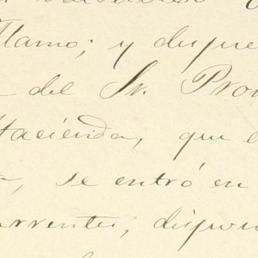 llamo; y dispue
del Sr. Prov
Hacienda, que e
a, se entró en
urrentes, dispon